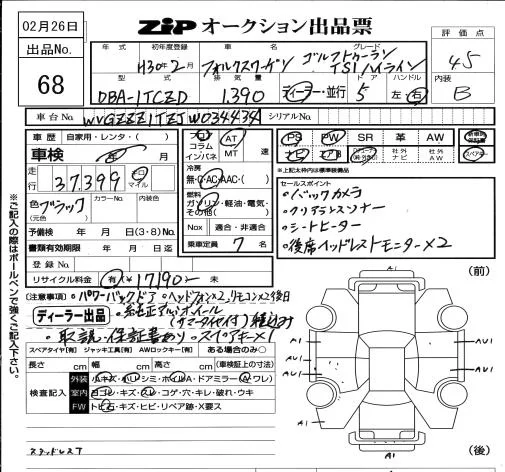 02月26日
ZIP オークション出品票
出品No. 68
評価点 4.5
内装 B
年式 初年度登録 車名 グレード
H30年2月 フォルクスワーゲン ゴルフトゥーラン TSIハイライン
型式 排気量 ドア ハンドル
DBA-1TCZD 1,390 ディーラー・並行 5 左・右
車台No. WVGZZZ1TZJW034434 シリアルNo.
車歴 自家用・レンタ・( )
車検 年 月
走行 37,399 キロ マイル
色 ブラック (元色) カラーNo. 内装色
予備検 年 月 日(3・8)もれ
書類有効期限 年 月 日迄
登録No.
リサイクル料金 有(¥17,190-) 未
フロア コラム インパネ AT MT 速
冷房 無・C・AC・AAC・( )
燃料 ガソリン・軽油・電気・その他( )
Nox 適合・非適合
乗車定員 7 名
PS PW SR 革 AW
ナビ エアB 社外ナビ 社外AW スペアキー
※上記太枠内は標準装備品
セールスポイント
・バックカメラ
・クリアランスソナー
・シートヒーター
・後席ヘッドレストモニター×2
(注意事項) ・パワーバックドア ・ヘッドフォン×2、リモコン×2後日
ディーラー出品
・純正アルミホイール
(タイヤ付)積込み
・取説・保証書あり ・スペアキー×1
スペアタイヤ[有] ジャッキ工具[有] AWロックキー[有] ある場合のみ○
長さ cm 幅 cm 高さ cm (車検証上の寸法)
検査記入
外装 小キズ・凹・シミ・ホイルA・ドアミラー(A・ワレ)
室内 ヨゴレ・キズ・スレ・コゲ・穴・キレ・破れ・ウキ
FW トビ石・キズ・ヒビ・リペア跡・X要ス
スタッドレス
※ご記入の際はボールペンで強くご記入下さい。
(前)
A1
A1
AU1
A1
AU1
AU1
A1
(後)